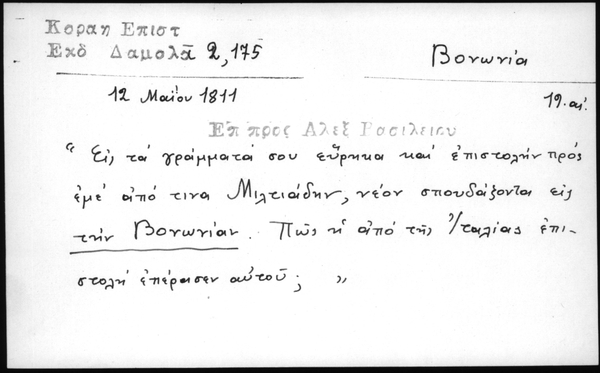 Κοραη Επιστ
Εκδ Δαμαλᾶ 2,175
Βονωνία
12 Μαΐου 1811
19. αἰ.
Επ προς Αλεξ Βασιλειου
“ Εἰς τά γράμματά σου εὕρηκα καί ἐπιστολήν πρός
ἐμέ ἀπό τινα Μιλτιάδην, νέον σπουδάζοντα εἰς
τήν Βονωνίαν. Πῶς ἡ ἀπό τῆς Ἰταλίας ἐπι-
στολή ἐπέρασεν αὐτοῦ; ”